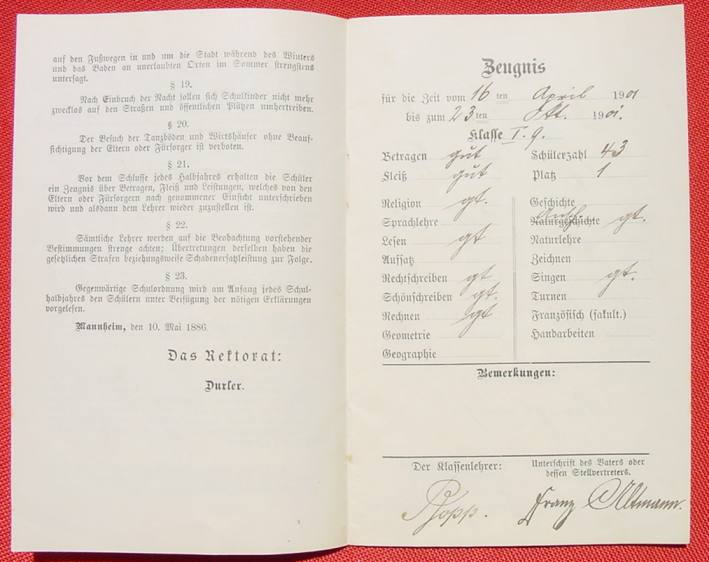 auf den Fußwegen in und um die Stadt während des Winters
und das Baden an unerlaubten Orten im Sommer strengstens
untersagt.
§ 19.
Nach Einbruch der Nacht sollen sich Schulkinder nicht mehr
zwecklos auf den Straßen und öffentlichen Plätzen umhertreiben.
§ 20.
Der Besuch der Tanzböden und Wirtshäuser ohne Beauf-
sichtigung der Eltern oder Fürsorger ist verboten.
§ 21.
Vor dem Schlusse jedes Halbjahres erhalten die Schüler
ein Zeugnis über Betragen, Fleiß und Leistungen, welches von den
Eltern oder Fürsorgern nach genommener Einsicht unterschrieben
wird und alsdann dem Lehrer wieder zuzustellen ist.
§ 22.
Sämtliche Lehrer werden auf die Beobachtung vorstehender
Bestimmungen strenge achten; Übertretungen derselben haben die
gesetzlichen Strafen beziehungsweise Schadenersatzleistung zur Folge.
§ 23.
Gegenwärtige Schulordnung wird am Anfang jedes Schul-
halbjahres den Schülern unter Beifügung der nötigen Erklärungen
vorgelesen.
Mannheim, den 10. Mai 1886.
Das Rektorat:
Durler.
Zeugnis
für die Zeit vom 16 ten April 1901
bis zum 23 ten Okt. 1901.
Klasse I. g.
Betragen gut Schülerzahl 43
Fleiß gut Platz 1
Religion gt.
Sprachlehre
Lesen gt
Aufsatz
Rechtschreiben gt
Schönschreiben gt.
Rechnen gt
Geometrie
Geographie
Geschichte
Naturgeschichte gt.
Naturlehre
Zeichnen
Singen gt.
Turnen
Französisch (fakult.)
Handarbeiten
Bemerkungen:
Der Klassenlehrer:
Unterschrift des Vaters oder
dessen Stellvertreters.
Franz Altmann.